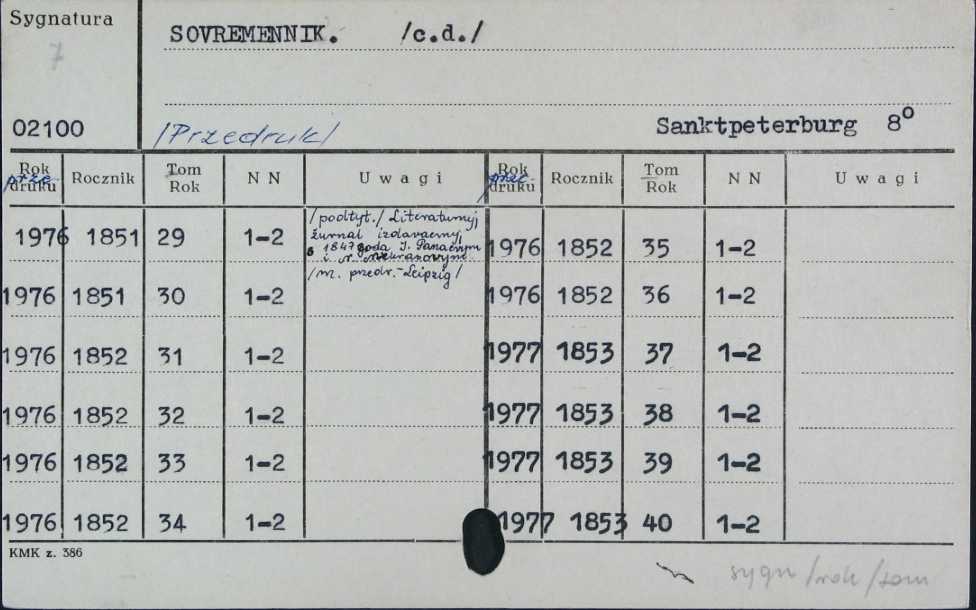 Sygnatura
7
SOVREMENNIK. /c.d./
02100
/Przedruk/
Sanktpeterburg 8°
Rok prze druku Rocznik Tom Rok N N U w a g i Rok prze druku Rocznik Tom Rok N N U w a g i
1976 1851 29 1-2 /podtyt./ Literaturnyj
žurnal izdavaemyj
s 1847 goda I. Panaevym
i N. Nekrasovym
/m. przedr.-Leipzig/
1976 1852 35 1-2
1976 1851 30 1-2 1976 1852 36 1-2
1976 1852 31 1-2 1977 1853 37 1-2
1976 1852 32 1-2 1977 1853 38 1-2
1976 1852 33 1-2 1977 1853 39 1-2
1976 1852 34 1-2 1977 1853 40 1-2
KMK z. 386
sygn/rok/tom